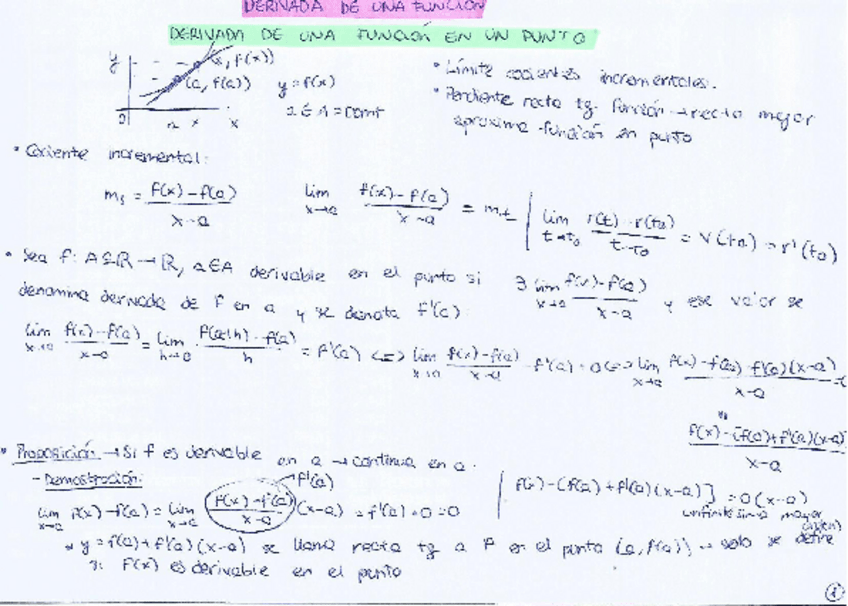 DERIVADA DE UNA FUNCIÓN
DERIVADA DE UNA FUNCIÓN EN UN PUNTO
y (x, f(x))
(a, f(a)) y = f(x)
a ∈ A = Dom f
0 a x x
• Límite cocientes incrementales.
• Pendiente recta tg. función → recta mejor
aproxima función en punto
• Cociente incremental:
m_s = (f(x) - f(a)) / (x - a) lim x→a (f(x) - f(a)) / (x - a) = m_t | lim t→t₀ (r(t) - r(t₀)) / (t - t₀) = v(t₀) = r'(t₀)
• Sea f: A ⊆ ℝ → ℝ, a ∈ A derivable en el punto si ∃ lim x→a (f(x) - f(a)) / (x - a) y ese valor se
denomina derivada de f en a y se denota f'(a)
lim x→a (f(x) - f(a)) / (x - a) = lim h→0 (f(a+h) - f(a)) / h = f'(a) <=> lim x→a (f(x) - f(a)) / (x - a) - f'(a) = 0 <=> lim x→a (f(x) - f(a) - f'(a)(x - a)) / (x - a) =
(f(x) - [f(a) + f'(a)(x - a) / (x - a)
• Proposición → Si f es derivable en a → continua en a.
- Demostración:
f'(a)
lim x→a f(x) - f(a) = lim x→a (f(x) - f(a)) / (x - a) (x - a) = f'(a) · 0 = 0
f(x) - [f(a) + f'(a)(x - a)] = o(x - a)
infinitésimo mayor
orden)
* y = f(a) + f'(a)(x - a) se llama recta tg a f en el punto (a, f(a)) → solo se define
si f(x) es derivable en el punto
1